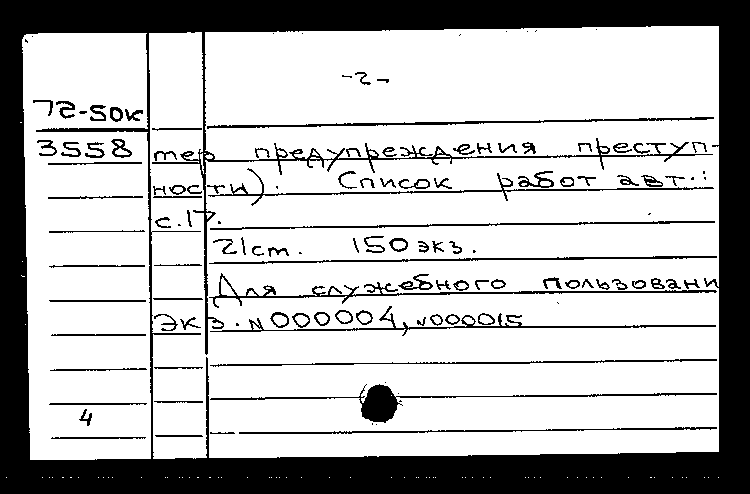 -2-
72-50к
3558 тер предупреждения преступ-
ности). Список работ авт.:
с.17.
21ст. 150 экз.
Для служебного пользовани
Экз. N 000004, N000015
4